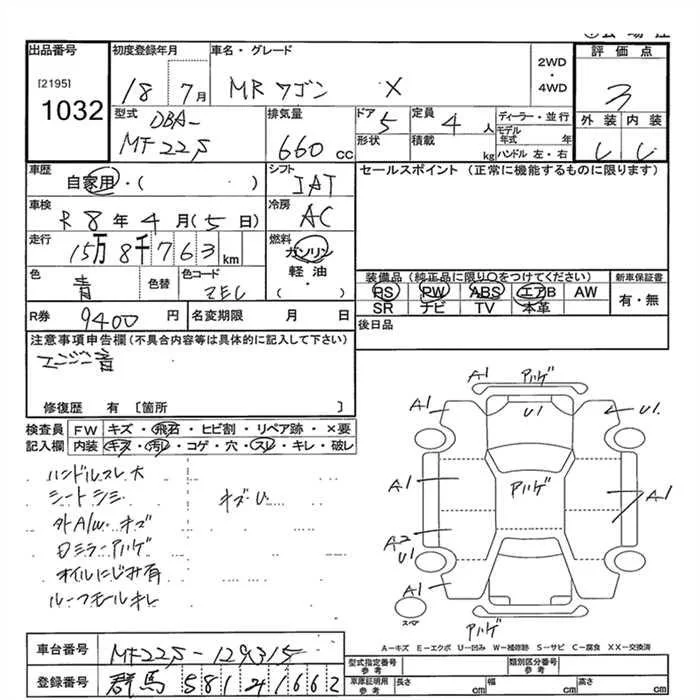 出品番号
[2195]
1032
初度登録年月
18 7月
車名・グレード
MRワゴン X
2WD
・
4WD
評価点
3
外装 内装
型式
DBA-
MF22S
排気量
660 CC
ドア 5
形状
定員 4 人
積載 kg
ディーラー・並行
モデル年式 年
ハンドル 左・右
車歴
自家用・( )
シフト
IAT
セールスポイント (正常に機能するものに限ります)
車検
R8年4月(5日)
冷房
AC
走行
15万8千763 km
燃料
ガソリン
軽油
・( )
色
青
色替
色コード
ZEL
装備品(純正品に限り○をつけてください)
PS PW ABS エアB AW
SR ナビ TV 本革
新車保証書
有・無
R券 9400 円
名変期限 月 日
後日品
注意事項申告欄(不具合内容等は具体的に記入して下さい)
エンジン音
修復歴 有 [箇所 ]
検査員記入欄
FW キズ・飛石・ヒビ割・リペア跡・×要
内装 キズ・汚レ・コゲ・穴・スレ・キレ・破レ
ハンドルスレ大
シートシミ
キズ・U
外A/W キズ
ロミラーアハゲ
オイルにじみ有
ルーフモールキレ
A1 アハゲ
A1 U1 U1.
A1 アハゲ A1
A2
U1
A1
スペア
アハゲ
A-キズ E-エクボ U-凹み W-補修跡 S-サビ C-腐食 XX-交換済
車台番号 MF22S-129315
登録番号 群馬 581 41662
型式指定番号 参考
類別区分番号 参考
車庫証明用 参考
長さ cm 幅 cm 高さ cm